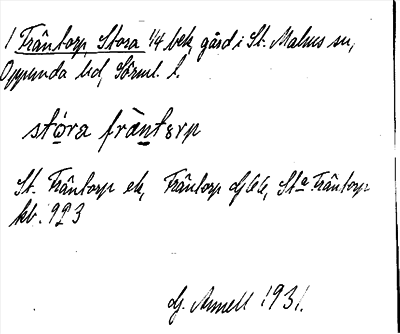 1 Fräntorp, Stora 1/4 bek, gård i St. Malms sn,
Oppunda hd, Sörml. l.
stơra fräntɔrp
St. Fräntorp ek, Fräntorp djbk, Sta Fräntorp
kb. 1923
dj. Annell 1931.